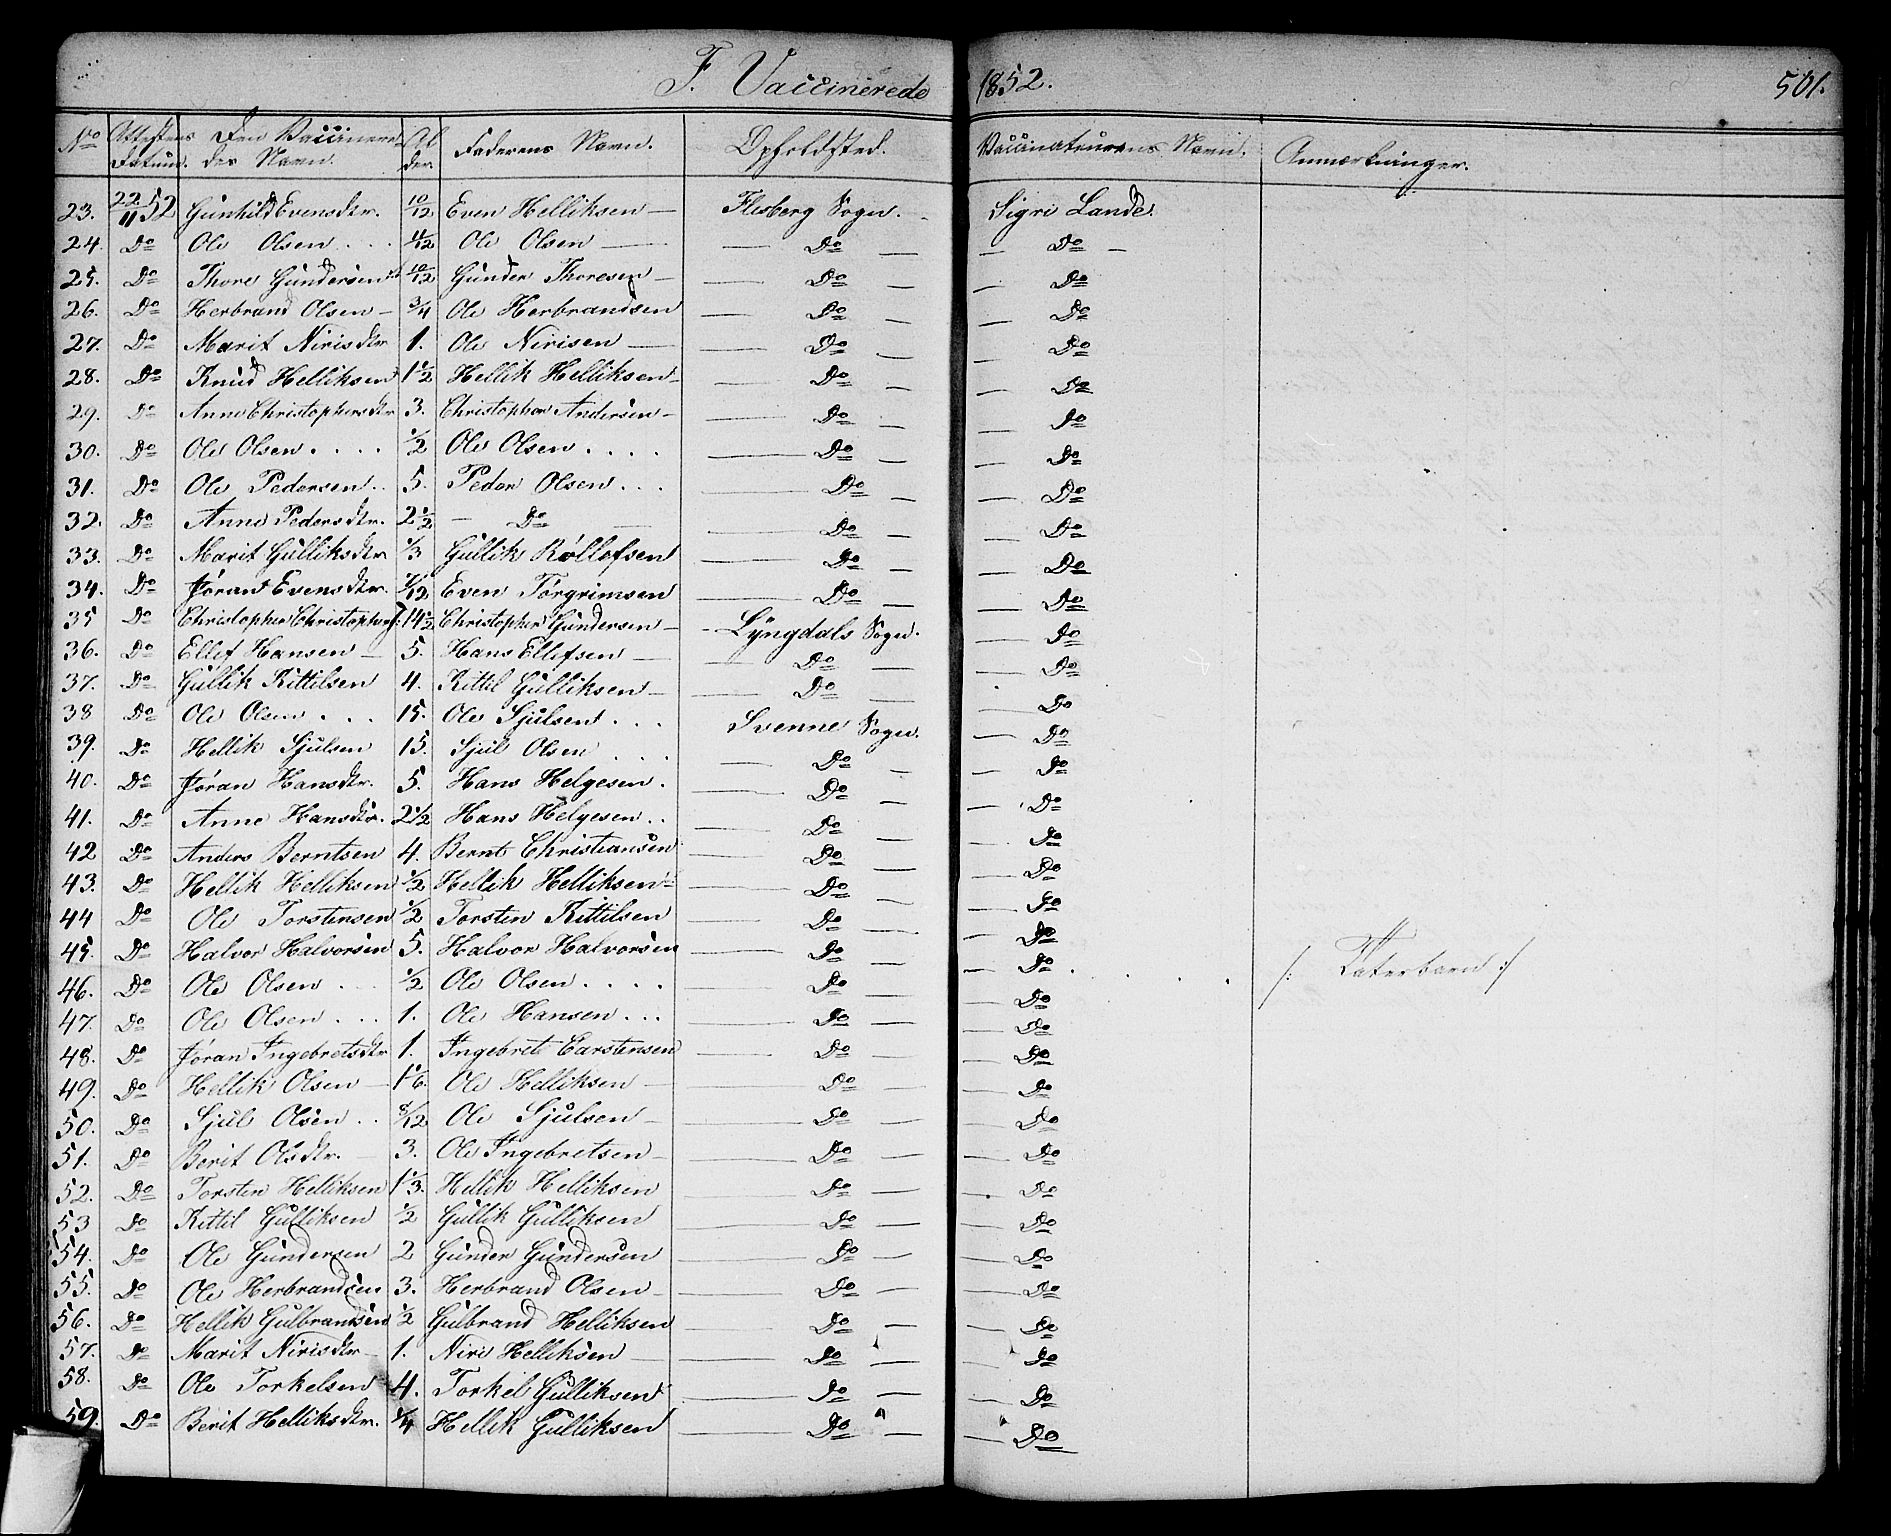 F. Vaccinerede 1852. 501.
No Attestens Datum. Den Vaccinere- des Navn. Al der. Faderens Navn. Opholdsted. Vaccinateurens Navn. Anmærkninger.
23. 22/11 52 Gunhild Evensdtr. 10/12 Even Helliksen — Flesberg Sogn. Sigri Lande.
24. Do Ole Olsen . . . 4/12 Ole Olsen — Do — Do —
25. Do Thore Gundersen 10/12 Gunder Thoresen — Do — Do
26. Do Herbrand Olsen — 3/4 Ole Herbrandsen — Do — Do
27. Do Marit Nirisdtr 1. Ole Nirisen — Do — Do
28. Do Knud Helliksen 1 1/2 Hellik Helliksen — Do — Do
29. Do Anne Christophersdtr 3. Christopher Andersen — Do — Do
30. Do Ole Olsen . . . . 1/2 Ole Olsen . . . . Do — Do
31. Do Ole Pedersen . . 5. Peder Olsen . . . Do — Do
32. Do Anne Pedersdtr. 2 1/2 — Do — Do — Do
33. Do Marit Gulliksdtr 1/3 Gullik Rollofsen — Do — Do
34. Do Jøran Evensdtr. /12 Even Torgrimsen — Do — Do
35 Do Christopher Christophers 14 1/2 Christopher Gundersen — Lyngdals Sogn. — Do
36. Do Ellef Hansen — 5. Hans Ellefsen — Do — Do
37. Do Gullik Kittilsen 4. Kittil Gulliksen — Do — Do
38 Do Ole Olsen . . . 15. Ole Sjulsen . . . Svenne Sogn. — Do
39. Do Hellik Sjulsen 15. Sjul Olsen . . . Do — Do
40. Do Jøran Hansdtr. 5. Hans Helgesen . Do — Do
41. Do Anne Hansdtr. 2 1/2 Hans Helgesen . . Do — Do
42 Do Anders Berntsen 4. Bernt Christiansen — Do — Do
43. Do Hellik Helliksen 1/2 Hellik Helliksen — Do — Do
44 Do Ole Torstensen 1/2 Torsten Kittilsen — Do — Do
45. Do Halvor Halvorsen 5. Halvor Halvorsen — Do — Do . . . . /: Taterbarn :/
46. Do Ole Olsen . . . 1/2 Ole Olsen . . . . Do — Do
47. Do Ole Olsen . . . 1. Ole Hansen . . . Do — Do
48. Do Jøran Ingebretsdtr 1. Ingebret Carstensen — Do — Do
49. Do Hellik Olsen — 1 1/6. Ole Helliksen — Do — Do
50. Do Sjul Olsen . . 8/12 Ole Sjulsen — Do — Do
51. Do Berit Olsdtr. — 3. Ole Ingebretsen — Do — Do
52. Do Torsten Helliksen 1 1/3. Hellik Helliksen — Do — Do
53 Do Kittil Gulliksen 1/2 Gullik Gulliksen — Do — Do
54. Do Ole Gundersen 2 Gunder Gundersen — Do — Do
55. Do Ole Herbrandsen 3. Herbrand Olsen — Do — Do
56. Do Hellik Gulbrandsen 1/2 Gulbrand Helliksen — Do — Do
57. Do Marit Nirisdtr — 1. Niri Helliksen — Do — Do
58. Do Ole Torkelsen 4. Torkel Gulliksen — Do — Do
59. Do Berit Helliksdtr. 1/4 Hellik Gulliksen — Do — Do